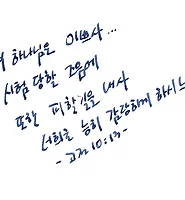 하나님은 미쁘사...
시험 당할 즈음에
또한 피할 길을 내사
너희로 능히 감당하게 하시느
- 고전 10:13 -